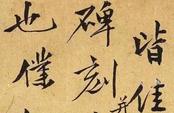 皆佳
碑刻
也僕